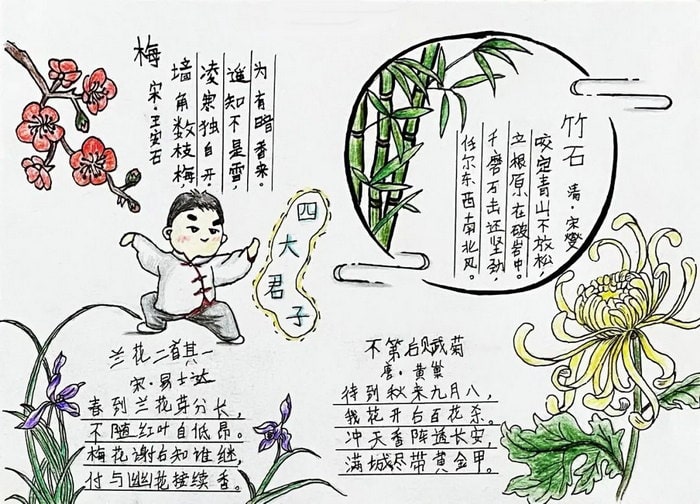 梅
宋·王安石
墙角数枝梅，
凌寒独自开
遥知不是雪，
为有暗香来。
四大君子
竹石
清·郑燮
咬定青山不放松，
立根原在破岩中。
千磨万击还坚劲，
任尔东西南北风。
兰花二首其一
宋·易士达
春到兰花芽分长，
不随红叶自低昂。
梅花谢后知谁继，
付与幽花接续香。
不第后赋菊
唐·黄巢
待到秋来九月八，
我花开后百花杀。
冲天香阵透长安，
满城尽带黄金甲。